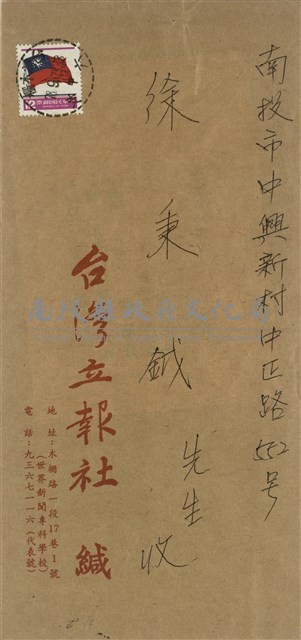 南投市中興新村中正路552号
徐秉鉞先生收
台灣立報社 緘
地址：木柵路一段17巷1號
（世界新聞專科學校）
電話：九三六七一一六（代表號）
南投縣政府文化局